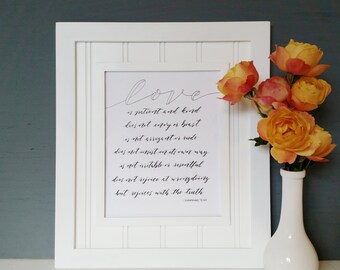 love
is patient and kind
does not envy or boast
is not arrogant or rude
does not insist on its own way
is not irritible or resentful
does not rejoice at wrongdoing
but rejoices with the truth